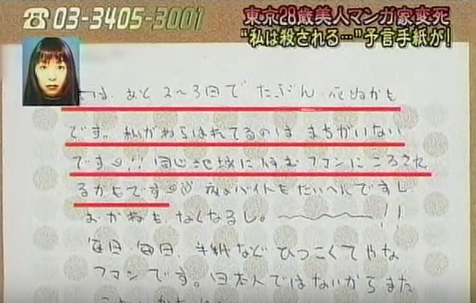 ☎03-3405-3001
東京28歳美人マンガ家変死
“私は殺される…”予言手紙が!
は、あと2〜3日でたぶん死ぬかも
です。私がねらはれてるのはまちがいない
です。!!同じ地域に住むファンにころされ
るかもです 夜のバイトもたいへんですし
おかねもなくなるし。!!
毎日毎日、手紙などひつこくてやな
ファンです。日本人ではないからまた